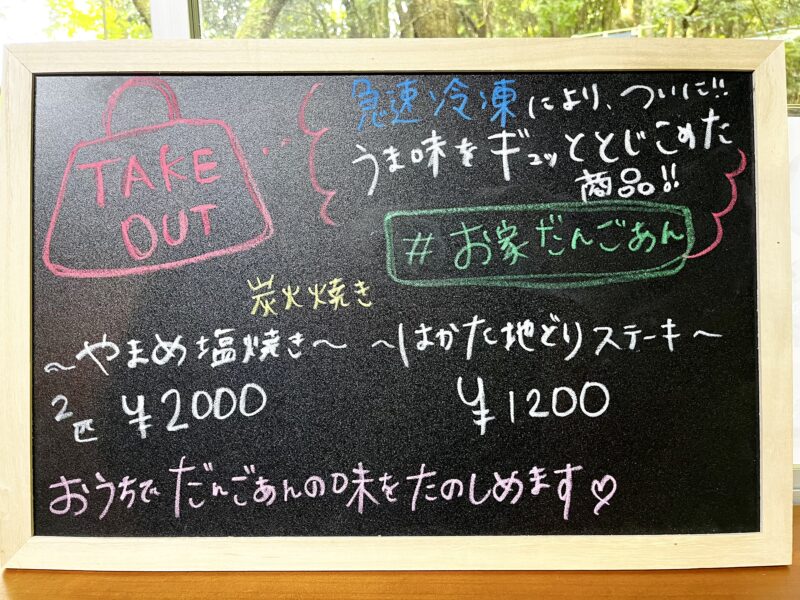 TAKE
OUT
急速冷凍により、ついに!!
うま味をギュッととじこめた
商品!!
#お家だんごあん
炭火焼き
～やまめ塩焼き～
2匹 ¥2000
～はかた地どりステーキ～
¥1200
おうちでだんごあんの味をたのしめます♡